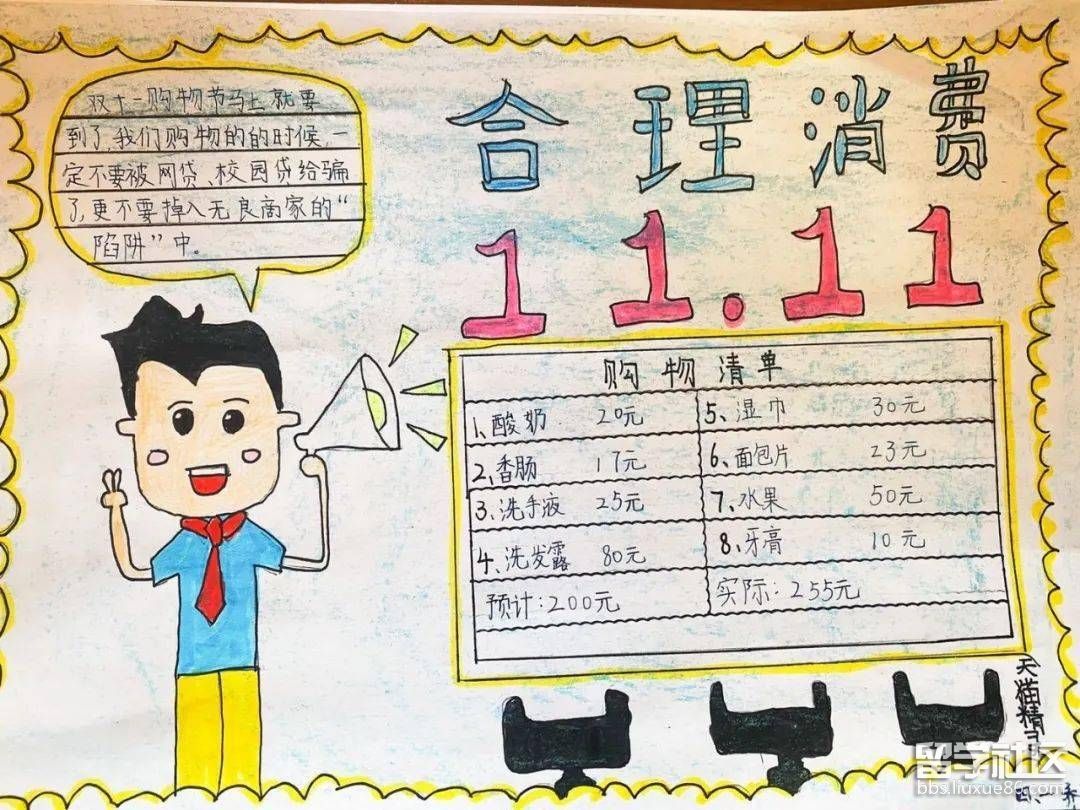 双十一购物节马上就要
到了,我们购物的的时候,一
定不要被网贷、校园贷给骗
了,更不要掉入无良商家的“
陷阱”中。
合理消费
11.11
购物清单
1、酸奶 20元
2、香肠 17元
3、洗手液 25元
4、洗发露 80元
预计:200元
5、湿巾 30元
6、面包片 23元
7、水果 50元
8、牙膏 10元
实际:255元
天猫精
留学社区
bbs.liuxue86.com